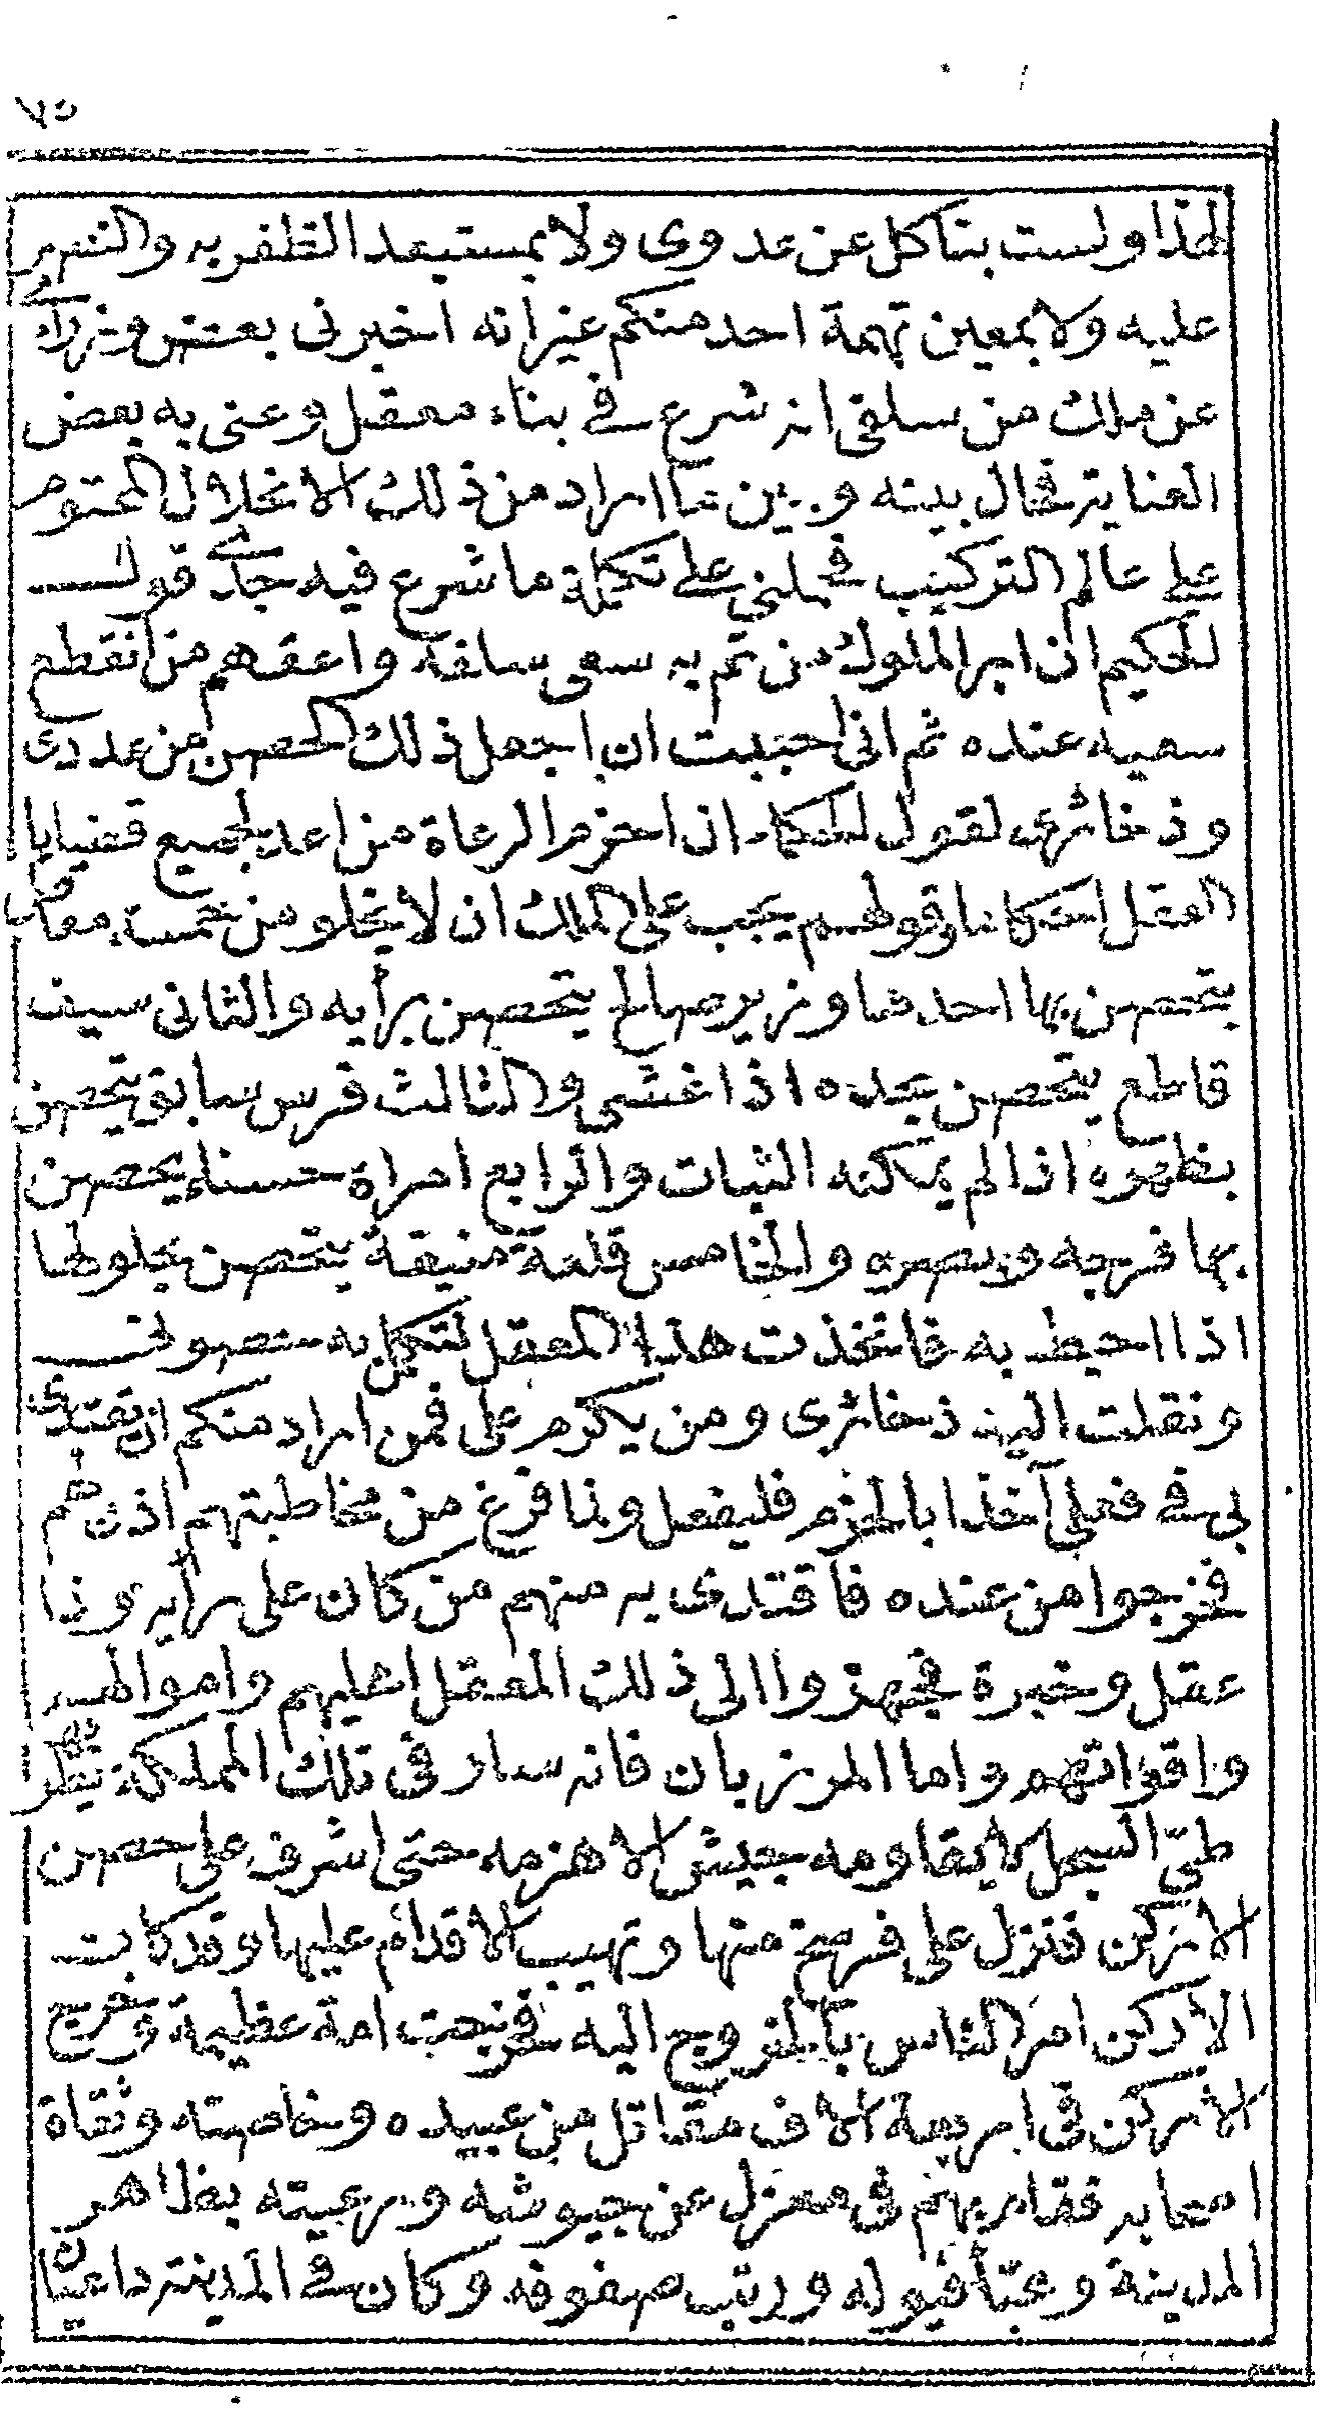 ٧٥
لهذا ولست بناكل عن عدوى ولا بمستبعد الظفر به والنصر
عليه ولا بمعين تهمة احد منكم غير انه اخبرنى بعض وزرائى
عن ملك من سلفى انه شرع فى بناء معقل وعنى به بعض
العناية فحال بينه وبين ما اراد من ذلك الانحلال المحتوم
على عالم التركيب فحملنى على تكملة ما شرع فيه جدى قول
الحكيم ان ابر الملوك من تم به سعى سلفه واعقهم من انقطع
سعيه عنده ثم انى احببت ان اجعل ذلك الحصن من عددى
وذخائرى لقول الحكماء ان احزم الرعاة من اعد لجميع قضايا
العقل احكاما وقولهم يجب على الملك ان لا يخلو من خمسة معاقل
يتحصن بها احدها وزير صالح يتحصن برأيه والثانى سيف
قاطع يتحصن بحده اذا غشى والثالث فرس سابق يتحصن
بظهره اذا لم يمكنه الثبات والرابع امراة حسناء يحصن
بها فرجه وبصره والخامس قلعة منيعة يتحصن بعلوها
اذا احيط به فاتخذت هذا المعقل لتكمل به حصونى
ونقلت اليه ذخائرى ومن يكرم على فمن اراد منكم ان يقتدى
بى فى فعلى آخذا بالحزم فليفعل ولما فرغ من مخاطبتهم اذن لهم
فخرجوا من عنده فاقتدى به منهم من كان على رأيه وذا
عقل وخبرة فجهزوا الى ذلك المعقل اهليهم واموالهم
واقواتهم واما المرزبان فانه سار فى تلك المملكة يطوا
طىّ السجل لا يقاومه جيش الا هزمه حتى اشرف على حصن
الاركن فنزل على فرسخ منها وتهيب الاقدام عليها وقد كانت
الاركن امر الناس بالخروج اليه فخرجت امة عظيمة وخرج
الاركن فى اربعة الاف مقاتل من عبيده وخاصته وثقاة
اصحابه فقام بهم فى معزل عن جيوشه ورعيته بظاهر
المدينة وعبّأ فيوله ورتب صفوفه وكان فى المدينة داعيان